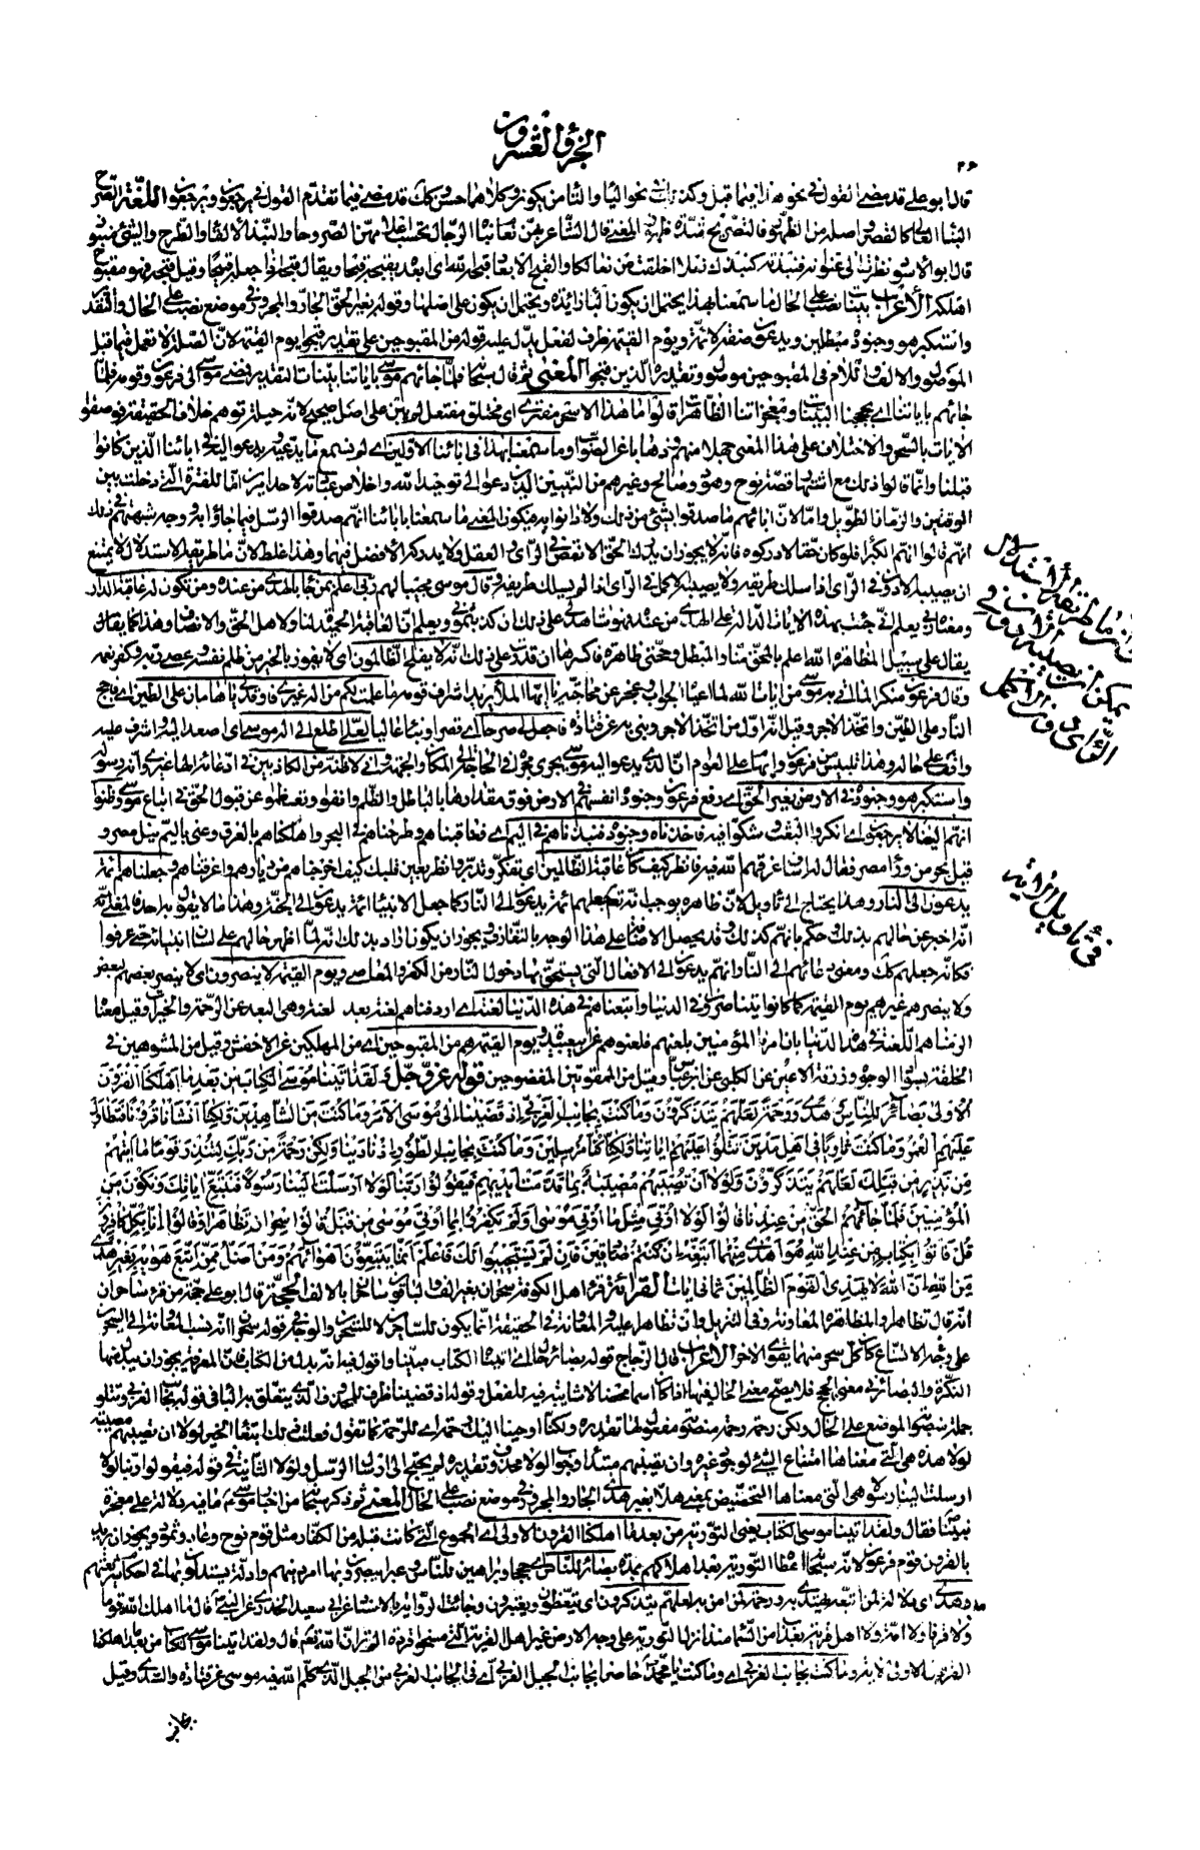 الجزء العشرون
٢٦
قال ابو علي قد مضى القول في نحو هذا فيما قبل وكذلك في نحو الياء والتاء من يكون وكلاهما حسن وكذلك قد مضى فيما تقدم القول في يرجعون ويرجعون اللغة الصرح
البناء العالي كالقصر واصله من الظهور فالتصريح شدة ظهور المعنى قال الشاعر بهن نعام بناها الرجال تحسب اعلامهن الصروحا والنبذ الالقاء والطرح والشيء منبوذ
قال ابو الاسود نظرت الى عنوانه فنبذته كنبذك نعلا اخلقت من نعالكا والقبح الابعاد قبحه الله اى ابعده يقبحه قبحا ويقال قبحه اذا جعله قبيحا وقيل قبحه فهو مقبوح
اهلكه الاعراب بينات نصب على الحال ما سمعنا بهذا يحتمل ان يكون الباء زائدة ويحتمل ان يكون على اصلها وقوله بغير الحق الجار والمجرور في موضع نصب على الحال والتقدير
واستكبر هو وجنوده مبطلين ويدعون صفة لائمة ويوم القيمة ظرف لفعل يدل عليه قوله من المقبوحين على تقدير قبحوا يوم القيمة لان الصلة لا تعمل فيما قبل
الموصول والالف واللام في المقبوحين موصول وتقديره الذين قبحوا المعنى ثم قال سبحانه فلما جائهم موسى باياتنا بينات التقدير فمضى موسى الى فرعون وقومه فلما
جائهم باياتنا اى بحججنا البينات ومعجزاتنا الظاهرات قالوا ما هذا الا سحر مفترى اى مختلق مفتعل لم يبن على اصل صحيح لانه حيلة توهم خلاف الحقيقة فوصفوا
الايات بالسحر والاختلاق على هذا المعنى جهلا منهم وذهابا عن الصواب وما سمعنا بهذا في ابائنا الاولين اى لم نسمع ما يدعيه ويدعو اليه في ابائنا الذين كانوا
قبلنا وانما قالوا ذلك مع اشتهار قصة نوح وهود وصالح وغيرهم من النبيين الذين دعوا الى توحيد الله واخلاص عبادته لاحد امرين اما للفترة التي دخلت بين
الوقتين والزمان الطويل واما لان ابائهم ما صدقوا بشيء من ذلك ولا دانوا به فيكون المعنى ما سمعنا بابائنا انهم صدقوا الرسل فيما جاؤا به ووجه شبهتهم في ذلك
انهم قالوا انهم الكبراء فلو كان حقا لادركوه فانه لا يجوز ان يدرك الحق الانقص في الراى والعقل ولا يدركه الافضل فيهما وهذا غلط لان ما طريقه الاستدلال لا يمتنع
ان يصيبه الادون في الراى اذا سلك طريقه ولا يصيبه الاكمل في الراى اذا لم يسلك طريقه وقال موسى مجيبا لهم ربي اعلم بمن جاء بالهدى من عنده ومن تكون له عاقبة الدار
يقال على سبيل المظاهرة الله اعلم بالمحق منا والمبطل وحجتي ظاهرة فاكسرها ان قدرت على ذلك انه لا يفلح الظالمون اى لا يفوز بالخير من ظلم نفسه وعصى ربه وكفر نعمه
وقال فرعون منكرا لما اتى به موسى من ايات الله لما اعياه الجواب وعجز عن محاجته يا ايها الملأ يريد اشراف قومه ما علمت لكم من اله غيرى فاوقد لي يا هامان على الطين اى فاجج
النار على الطين واتخذ الاجر وقيل انه اول من اتخذ الاجر وبنى به عن قتادة فاجعل لي صرحا اى قصرا وبناء عاليا لعلى اطلع الى اله موسى اى اصعد اليه واشرف عليه
واقف على حاله وهذا تلبيس من فرعون وايهام على العوام ان الذي يدعو اليه موسى يجرى مجراه في الحاجة الى المكان والجهة واني لاظنه من الكاذبين في ادعائه الها غيرى وانه رسوله
واستكبر هو وجنوده في الارض بغير الحق اى رفع فرعون وجنوده انفسهم في الارض فوق مقدارها بالباطل والظلم وانفوا وتعظموا عن قبول الحق في اتباع موسى وظنوا
انهم الينا لا يرجعون اى انكروا البعث وشكوا فيه فاخذناه وجنوده فنبذناهم في اليم اى فعاقبناهم وطرحناهم في البحر واهلكناهم بالغرق وعنى باليم نيل مصر و
قيل بحر من وراء مصر يقال له اساف غرقهم الله فيه فانظر كيف كان عاقبة الظالمين اى تفكر وتدبر وانظر بعين قلبك كيف اخرجناهم من ديارهم واغرقناهم وجعلناهم ائمة
يدعون الى النار وهذا يحتاج الى تاويل لان ظاهره يوجب انه تعالى جعلهم ائمة يدعون الى النار كما جعل الانبياء ائمة يدعون الى الجنة وهذا ما لا يقول به احد فالمعنى
انه اخبر عن حالهم بذلك وحكم بانهم كذلك وقد يحصل الاضافة على هذا الوجه بالتعارف ويجوز ان يكون اراد بذلك انه لما اظهر حالهم على لسان انبيائه حتى عرفوا
فكانه جعلهم كذلك ومعنى دعائهم الى النار انهم يدعون الى الافعال التي يستحق بها دخول النار من الكفر والمعاصي ويوم القيمة لا ينصرون اى لا ينصر بعضهم لبعض
ولا ينصرهم غيرهم يوم القيمة كما كانوا يتناصرون في الدنيا واتبعناهم في هذه الدنيا لعنة اى اردفناهم لعنة بعد لعنة وهي البعد عن الرحمة والخيرات وقيل معناه
الزمناهم اللعنة في هذه الدنيا بان امرنا المؤمنين بلعنهم فلعنوهم عن ابي عبيدة ويوم القيمة هم من المقبوحين اى من المهلكين عن الاخفش وقيل من المشوهين في
الخلقة بسواد الوجوه وزرقة الاعين عن الكلبي عن ابن عباس وقيل من الممقوتين المفضوحين قوله عز وجل ولقد اتينا موسى الكتاب من بعد ما اهلكنا القرون
الاولى بصائر للناس وهدى ورحمة لعلهم يتذكرون وما كنت بجانب الغربي اذ قضينا الى موسى الامر وما كنت من الشاهدين ولكنا انشانا قرونا فتطاول
عليهم العمر وما كنت ثاويا في اهل مدين تتلوا عليهم اياتنا ولكنا كنا مرسلين وما كنت بجانب الطور اذ نادينا ولكن رحمة من ربك لتنذر قوما ما اتيهم
من نذير من قبلك لعلهم يتذكرون ولولا ان تصيبهم مصيبة بما قدمت ايديهم فيقولوا ربنا لولا ارسلت الينا رسولا فنتبع اياتك ونكون من
المؤمنين فلما جائهم الحق من عندنا قالوا لولا اوتي مثل ما اوتي موسى اولم يكفروا بما اوتي موسى من قبل قالوا سحران تظاهرا وقالوا انا بكل كافرون
قل فاتوا بكتاب من عند الله هو اهدى منهما اتبعه ان كنتم صادقين فان لم يستجيبوا لك فاعلم انما يتبعون اهوائهم ومن اضل ممن اتبع هويه بغير هدى
من الله ان الله لا يهدى القوم الظالمين ثماني ايات القرائة قرء اهل الكوفة سحران بغير الف والباقون ساحران بالالف الحجة قال ابو علي حجة من قرء ساحران
انه قال تظاهرا والمظاهرة المعاونة وفي التنزيل وان تظاهرا عليه والمعاونة في الحقيقة انما يكون للساحرين لا للسحرين والوجه في قوله سحران انه نسب المعاونة الى السحرين
على وجه الاتساع كان كل سحر منهما يقوى الاخر الاعراب قال الزجاج قوله بصائر حال اى اتيناه الكتاب مبينا واقول فيه انه بدل من الكتاب فان المعرفة يجوز ان يبدل منها
النكرة والبصائر في معنى الحجج فلا يصح معنى الحال فيها اذا كان اسما محضا لا شايبة فيه للفعل وقوله اذ قضينا ظرف للمحذوف الذي يتعلق به الباء في قوله بجانب الغربي وتتلو
جملة منصوبة الموضع على الحال ولكن رحمة رحمة منصوب مفعول لها تقديره ولكنا اوحينا اليك رحمة اى للرحمة كما تقول فعلت ذلك ابتغاء الخير لولا ان تصيبهم مصيبة
لولا هذه هي التي معناها امتناع الشيء لوجود غيره وان تصيبهم مبتدأ وجواب لولا محذوف وتقديره لم يحتج الى ارسال الرسل ولولا الثانية في قوله فيقولوا ربنا لولا
ارسلت الينا رسولا هي التي معناها التحضيض بمعنى هلا بغير هدى الجار والمجرور في موضع نصب على الحال المعنى ثم ذكر سبحانه من اخبار موسى ما فيه دلالة على معجزة
نبينا فقال ولقد اتينا موسى الكتاب يعني التورية من بعد ما اهلكنا القرون الاولى اى الجموع التي كانت قبله من الكفار مثل قوم نوح وعاد وثمود ويجوز ان يريد
بالقرون قوم فرعون لانه سبحانه اعطاه التورية بعد اهلاكهم بمدة بصائر للناس اى حججا وبراهين للناس وعبرا يبصرون بها امر دينهم وادلة يستدلون بها في احكام شريعتهم
وهدى اى دلالة لمن اتبعه يهتدى به ورحمة لمن امن به لعلهم يتذكرون اى يتعظون ويعتبرون وجائت الرواية بالاسناد عن ابي سعيد الخدرى عن النبي قال ما اهلك الله قوما
ولا قرنا ولا امة ولا اهل قرية بعذاب من السماء منذ انزل التورية على وجه الارض غير اهل القرية التي مسخوا قردة الم تر ان الله تعالى قال ولقد اتينا موسى الكتاب من بعد ما اهلكنا
القرون الاولى الاية وما كنت بجانب الغربي اى وما كنت يا محمد حاضرا بجانب الجبل الغربي اى في الجانب الغربي من الجبل الذي كلم الله فيه موسى عن قتادة والسدى وقيل
بجانب
في تاويل الاية